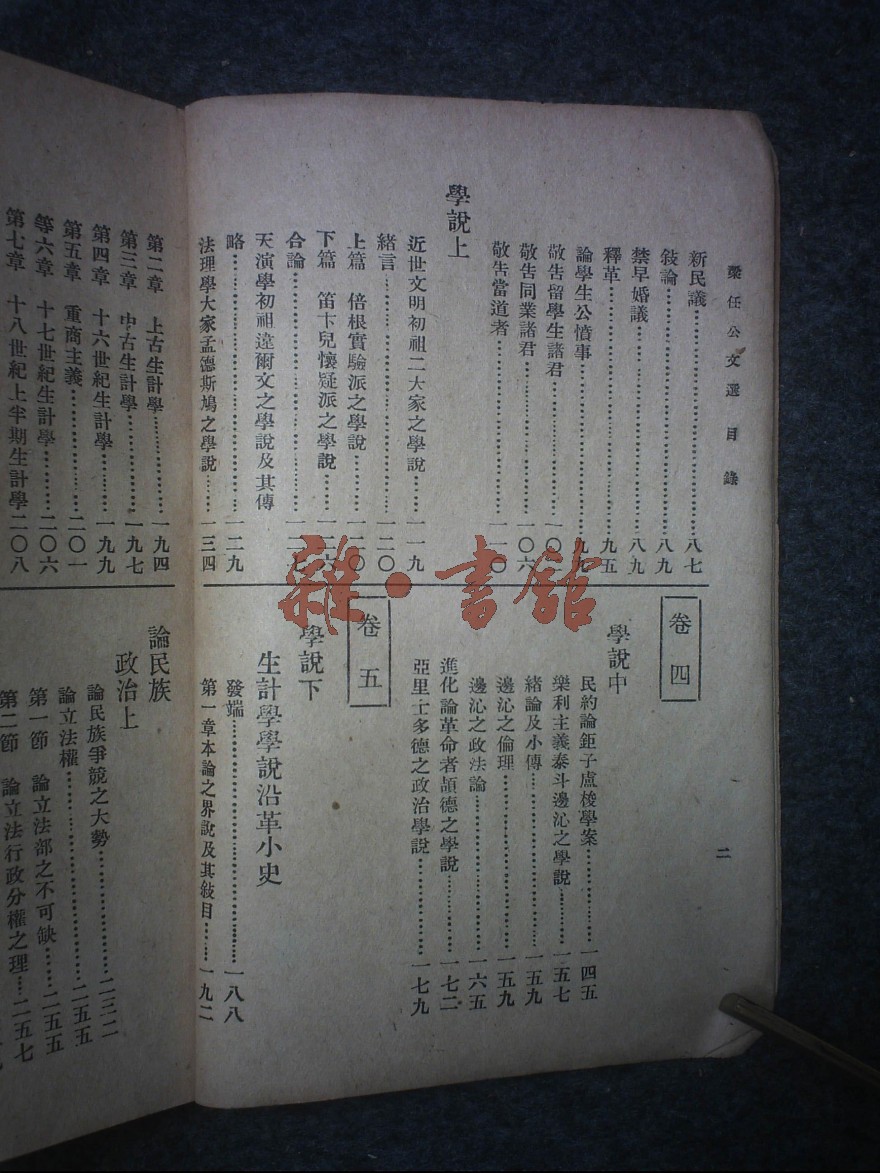 梁任公文選目錄
二
新民議………八七
敍論………八九
禁早婚議………八九
釋革………九五
論學生公憤事………九九
敬告留學生諸君………一〇〇
敬告同業諸君………一〇六
敬告當道者………一一〇
學說上
近世文明初祖二大家之學說………一一九
緒言………一二〇
上篇　倍根實驗派之學說………一二〇
下篇　笛卞兒懷疑派之學說………一二六
合論………一二七
天演學初祖達爾文之學說及其傳
略………一二九
法理學大家孟德斯鳩之學說………一三四
卷四
學說中
民約論鉅子盧梭學案………一四五
樂利主義泰斗邊沁之學說………一五七
緒論及小傳………一五九
邊沁之倫理………一五九
邊沁之政法論………一六五
進化論革命者頡德之學說………一七二
亞里士多德之政治學說………一七九
卷五
學說下
生計學學說沿革小史
發端………一八八
第一章本論之界說及其敍目………一九二
第二章　上古生計學………一九四
第三章　中古生計學………一九七
第四章　十六世紀生計學………一九九
第五章　重商主義………二〇一
第六章　十七世紀生計學………二〇六
第七章　十八世紀上半期生計學二〇八
論民族
政治上
論民族爭競之大勢………二三二
論立法權………二五五
第一節　論立法部之不可缺………二五五
第二節　論立法行政分權之理…二五七
雜·書館